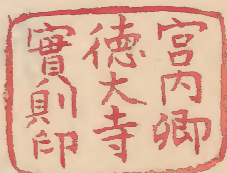 宮内卿
徳大寺
實則印